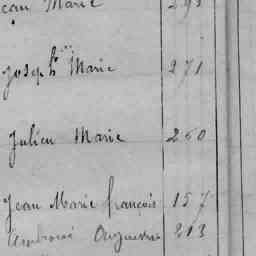 Jean Marie 293
Joseph Marie 271
Julien Marie 260
Jean Marie françois 157
Ambroise Auguste 213